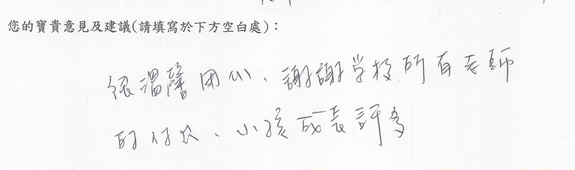 您的寶貴意見及建議(請填寫於下方空白處)：
很溫馨用心、謝謝学校所有老師
的付出、小孩成長許多